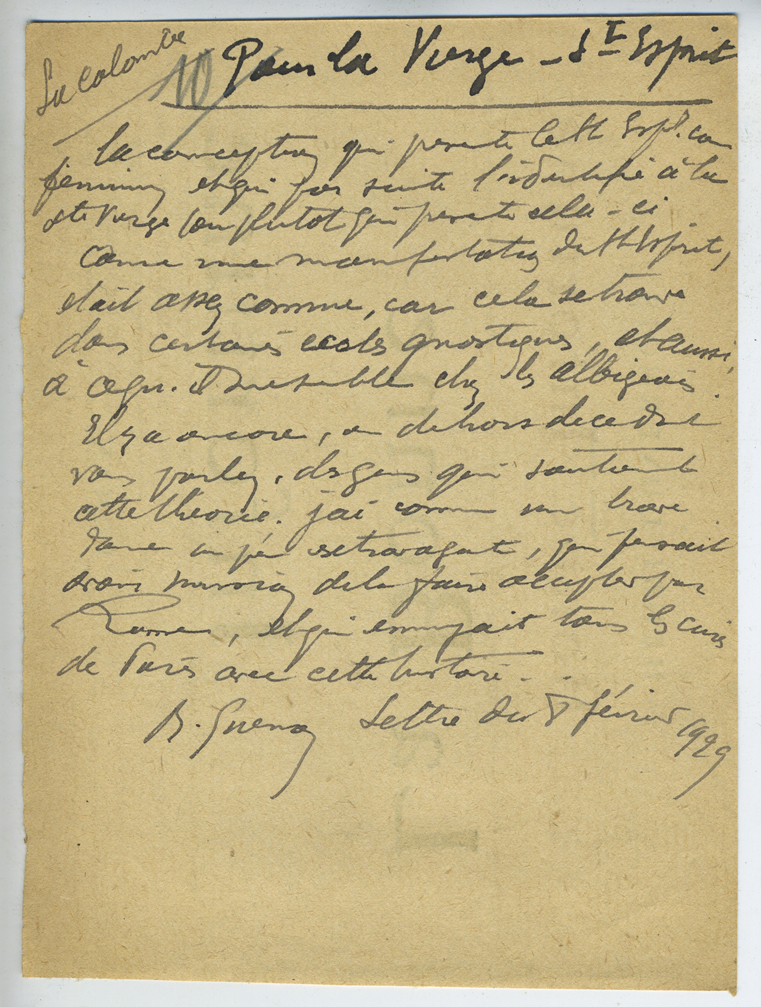 La colombe
10 Pour la Vierge - St Esprit
La conception qui présente le St Esp. com
féminin et qui par suite l'identifie à la
ste Vierge (ou plutôt qui présente celle-ci
comme une manifestation du St Esprit)
était assez connue, car cela se trouve
dans certaines écoles gnostiques, et aussi,
à ce qu'il me semble chez les albigeois.
Il y a encore, en dehors de ce dont
vous parlez, des gens qui soutiennent
cette théorie. j'ai connu une brave
dame un peu extravagante, qui pensait
avoir mission de la faire accepter par
Rome, et qui ennuyait tous les curés
de Paris avec cette histoire...
R. Guénon Lettre du 8 février 1929